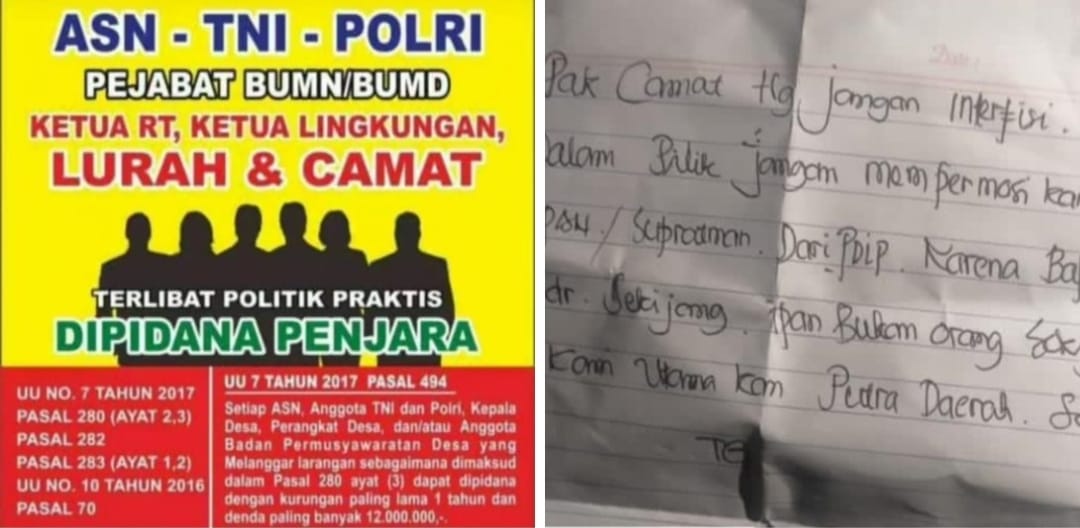 ASN - TNI - POLRI
PEJABAT BUMN/BUMD
KETUA RT, KETUA LINGKUNGAN,
LURAH & CAMAT
TERLIBAT POLITIK PRAKTIS
DIPIDANA PENJARA
UU NO. 7 TAHUN 2017
PASAL 280 (AYAT 2,3)
PASAL 282
PASAL 283 (AYAT 1,2)
UU NO. 10 TAHUN 2016
PASAL 70
UU 7 TAHUN 2017 PASAL 494
Setiap ASN, Anggota TNI dan Polri, Kepala
Desa, Perangkat Desa, dan/atau Anggota
Badan Permusyawaratan Desa yang
Melanggar larangan sebagaimana dimaksud
dalam Pasal 280 ayat (3) dapat dipidana
dengan kurungan paling lama 1 tahun dan
denda paling banyak 12.000.000,-.
Pak Camat tlg jangan Interfisi.
Dalam Pilik jangan mempermosi
/ Suprataman. Dari PDIP. Karena
dr. Sekijang. ipan Bukan orang
Kami Utama kan Putra Daerah.